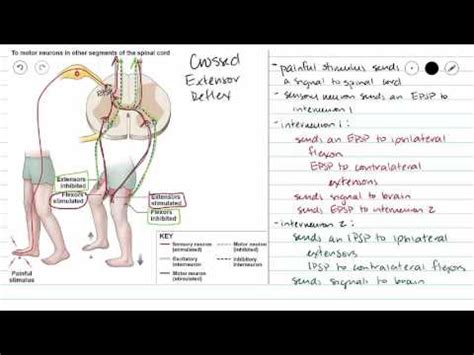 To motor neurons in other segments of the spinal cord
Crossed
Extensor
Reflex
Extensors
inhibited
Flexors
stimulated
Extensors
stimulated
Flexors
inhibited
Painful
stimulus
KEY
Sensory neuron
(stimulated)
Excitatory
interneuron
Motor neuron
(stimulated)
Motor neuron
(inhibited)
Inhibitory
interneuron
- painful stimulus sends
a signal to spinal cord
- sensory neuron sends an EPSP to
interneuron 1
- interneuron 1:
sends an EPSP to ipsilateral
flexors
EPSP to contralateral
extensors
sends signal to brain
sends EPSP to interneuron 2
- interneuron 2:
sends an IPSP to ipsilateral
extensors
IPSP to contralateral flexors
sends signals to brain